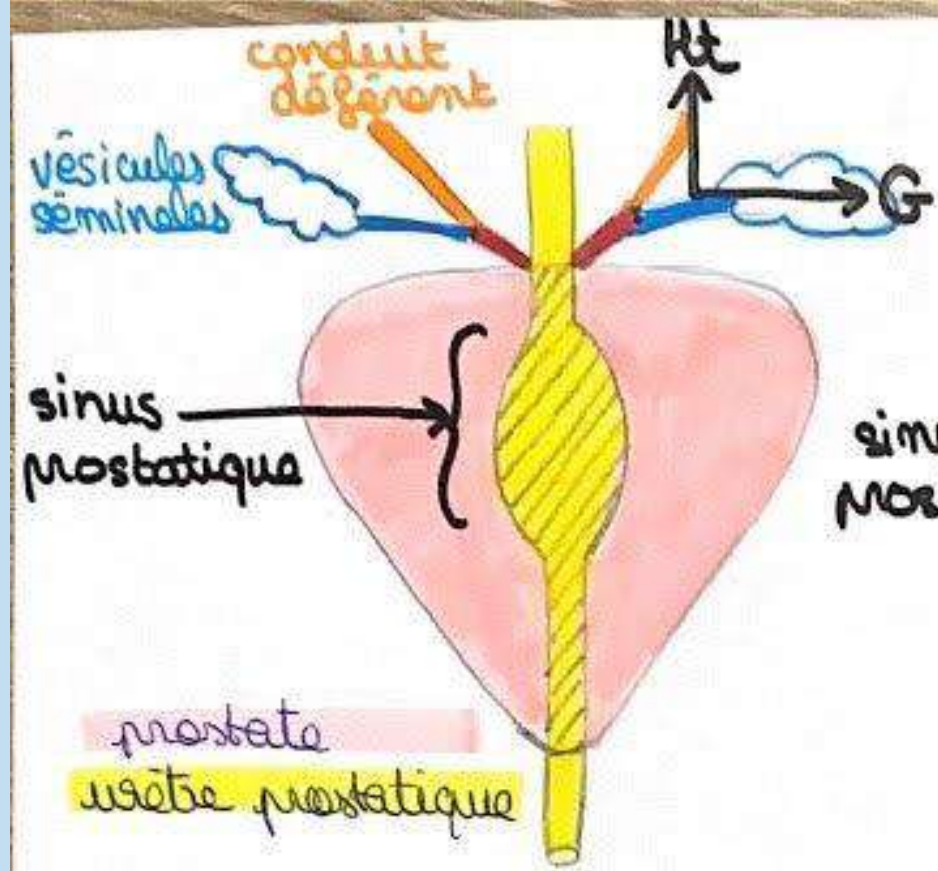 conduit
déférent
Ht
vésicules
séminales
G
sinus
prostatique
sinu
pros
prostate
urètre prostatique